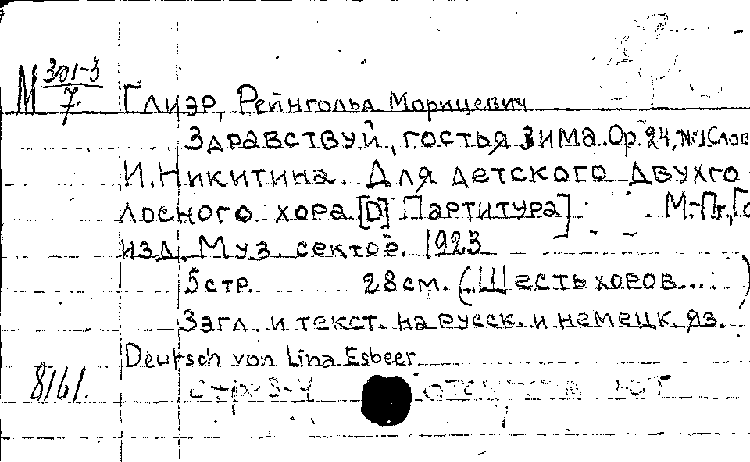 М 301-3
7
Глиэр, Рейнгольд Морицевич
Здравствуй, гостья зима. Op. 24, №1 Слов
И. Никитина. Для детского двухго
лосного хора [D] Партитура] М.-Пг., Го
изд. Муз. сектор. 1923
5 стр. 28 см. (Шесть хоров...)
Загл. и текст. на русск. и немецк. яз.
Deutsch von Lina Esbeer
8161. стр. 3-4